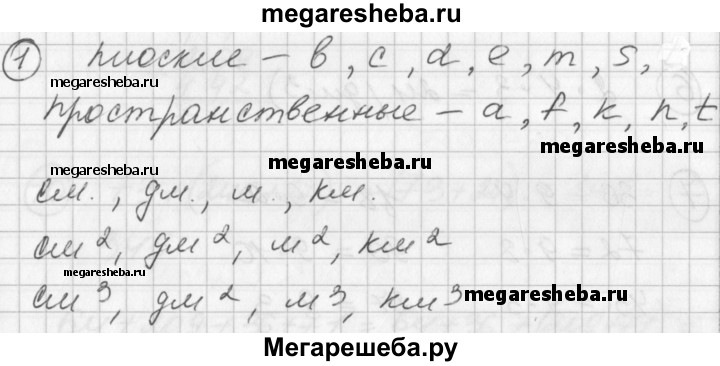 megaresheba.ru
① плоские – в, с, d, e, m, s,
megaresheba.ru
пространственные – a, f, k, n, t
megaresheba.ru
megaresheba.ru
megaresheba.ru
см., дм., м., км.
см², дм², м², км²
megaresheba.ru
см³, дм², м³, км³
megaresheba.ru
Мегарешеба.ру